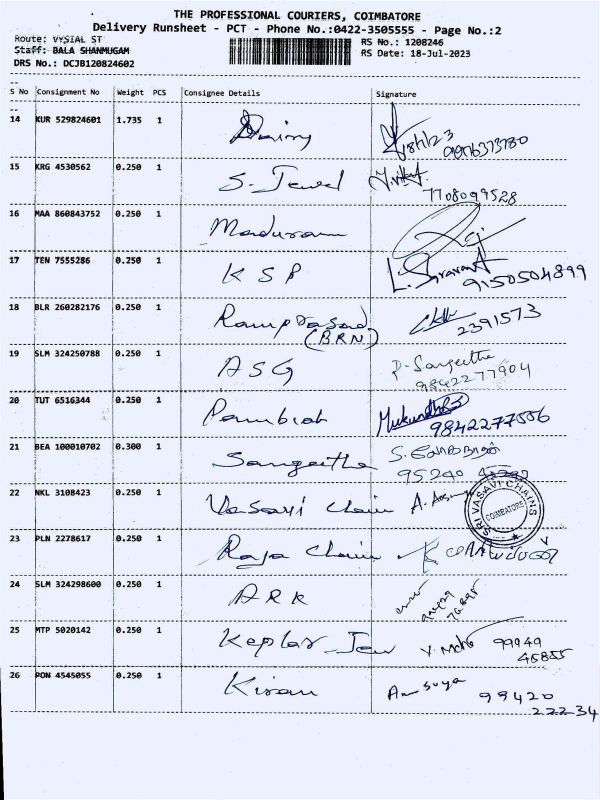 THE PROFESSIONAL COURIERS, COIMBATORE
Delivery Runsheet - PCT - Phone No.:0422-3505555 - Page No.:2
Route: VYSIAL ST
RS No.: 1208246
Staff: BALA SHANMUGAM
RS Date: 18-Jul-2023
DRS No.: DCJB120824602
S No Consignment No Weight PCS Consignee Details Signature
14 KUR 529824601 1.735 1
15 KRG 4530562 0.250 1 S. Jewel
7708099528
16 MAA 860843752 0.250 1 Maduram
17 TEN 7555286 0.250 1 KSP L. Saravan
9150504899
18 BLR 260282176 0.250 1 Ramprasad
(BRN) 2391573
19 SLM 324250788 0.250 1 ASG P. Sangeetha
9842277904
20 TUT 6516344 0.250 1 Mukundh
9842277556
21 BEA 100010702 0.300 1 Sangeetha
95240
22 NKL 3108423 0.250 1 Vasavi Chain
SRI VASAVI CHAINS
COIMBATORE
23 PLN 2278617 0.250 1 Raja Chain
24 SLM 324298600 0.250 1 ARK
25 MTP 5020142 0.250 1 Keplar Jew 99949
45855
26 PON 4545055 0.250 1 Kiran Anusuya 99420
22234